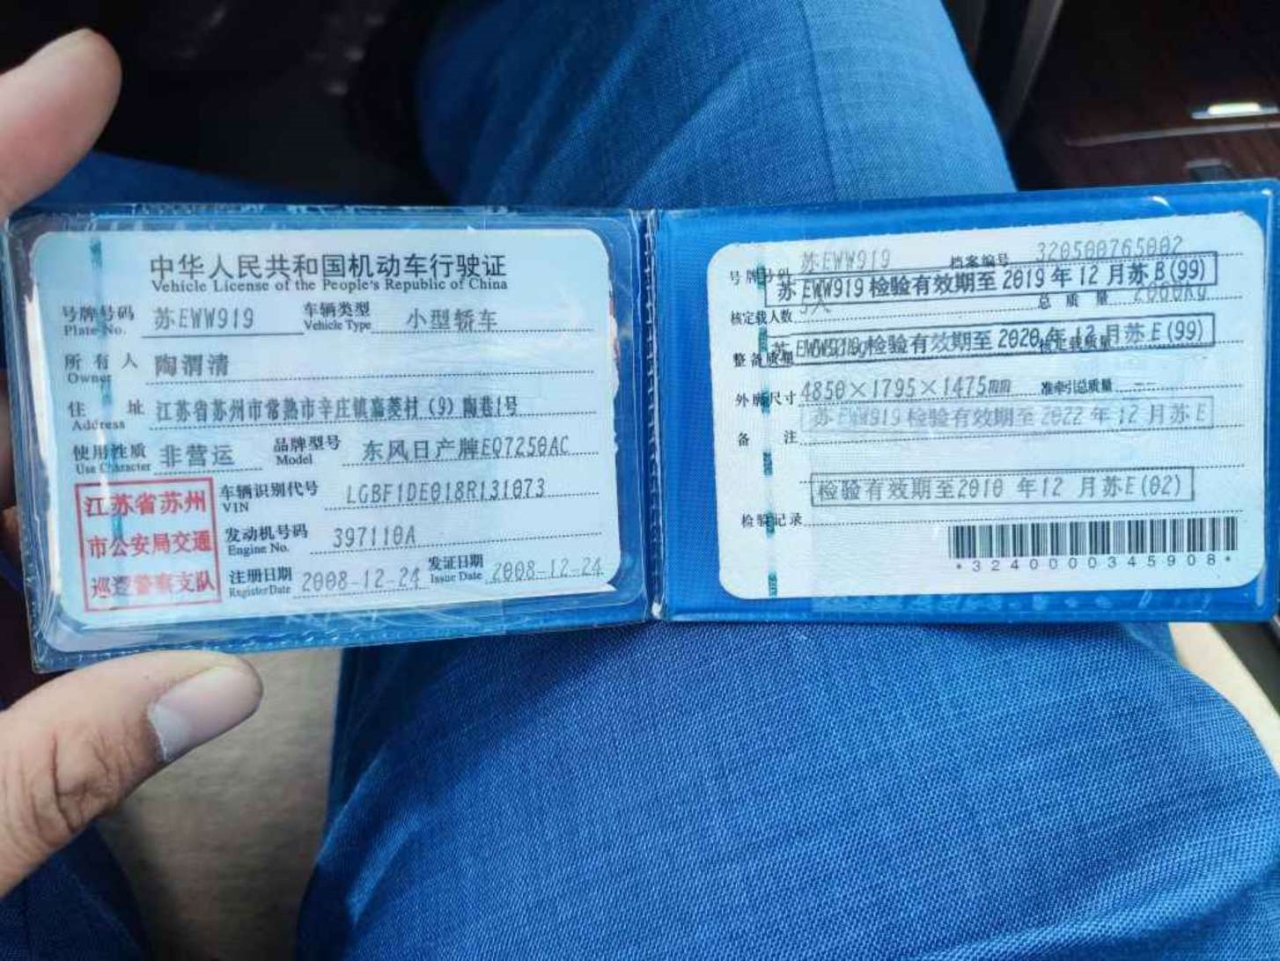 中华人民共和国机动车行驶证
Vehicle License of the People's Republic of China
号牌号码 苏EWW919 车辆类型 小型轿车
Plate No. Vehicle Type
所有人 陶渭清
Owner
住址 江苏省苏州市常熟市辛庄镇嘉菱村(9)陶巷1号
Address
使用性质 非营运 品牌型号 东风日产牌EQ7250AC
Use Character Model
江苏省苏州
市公安局交通
巡逻警察支队
车辆识别代号 LGBF1DE018R131073
VIN
发动机号码 397110A
Engine No.
注册日期 2008-12-24 发证日期 2008-12-24
Register Date Issue Date
号牌号码 苏EWW919 档案编号 320500765002
苏EWW919检验有效期至2019年12月苏B(99)
核定载人数 5人 总质量 2000kg
苏EWW919检验有效期至2020年12月苏E(99)
整备质量 核定载质量
外廓尺寸 4850×1795×1475 准牵引总质量 --
苏EWW919检验有效期至2022年12月苏E
备注
检验有效期至2010年12月苏E(02)
检验记录
*3240000345908*